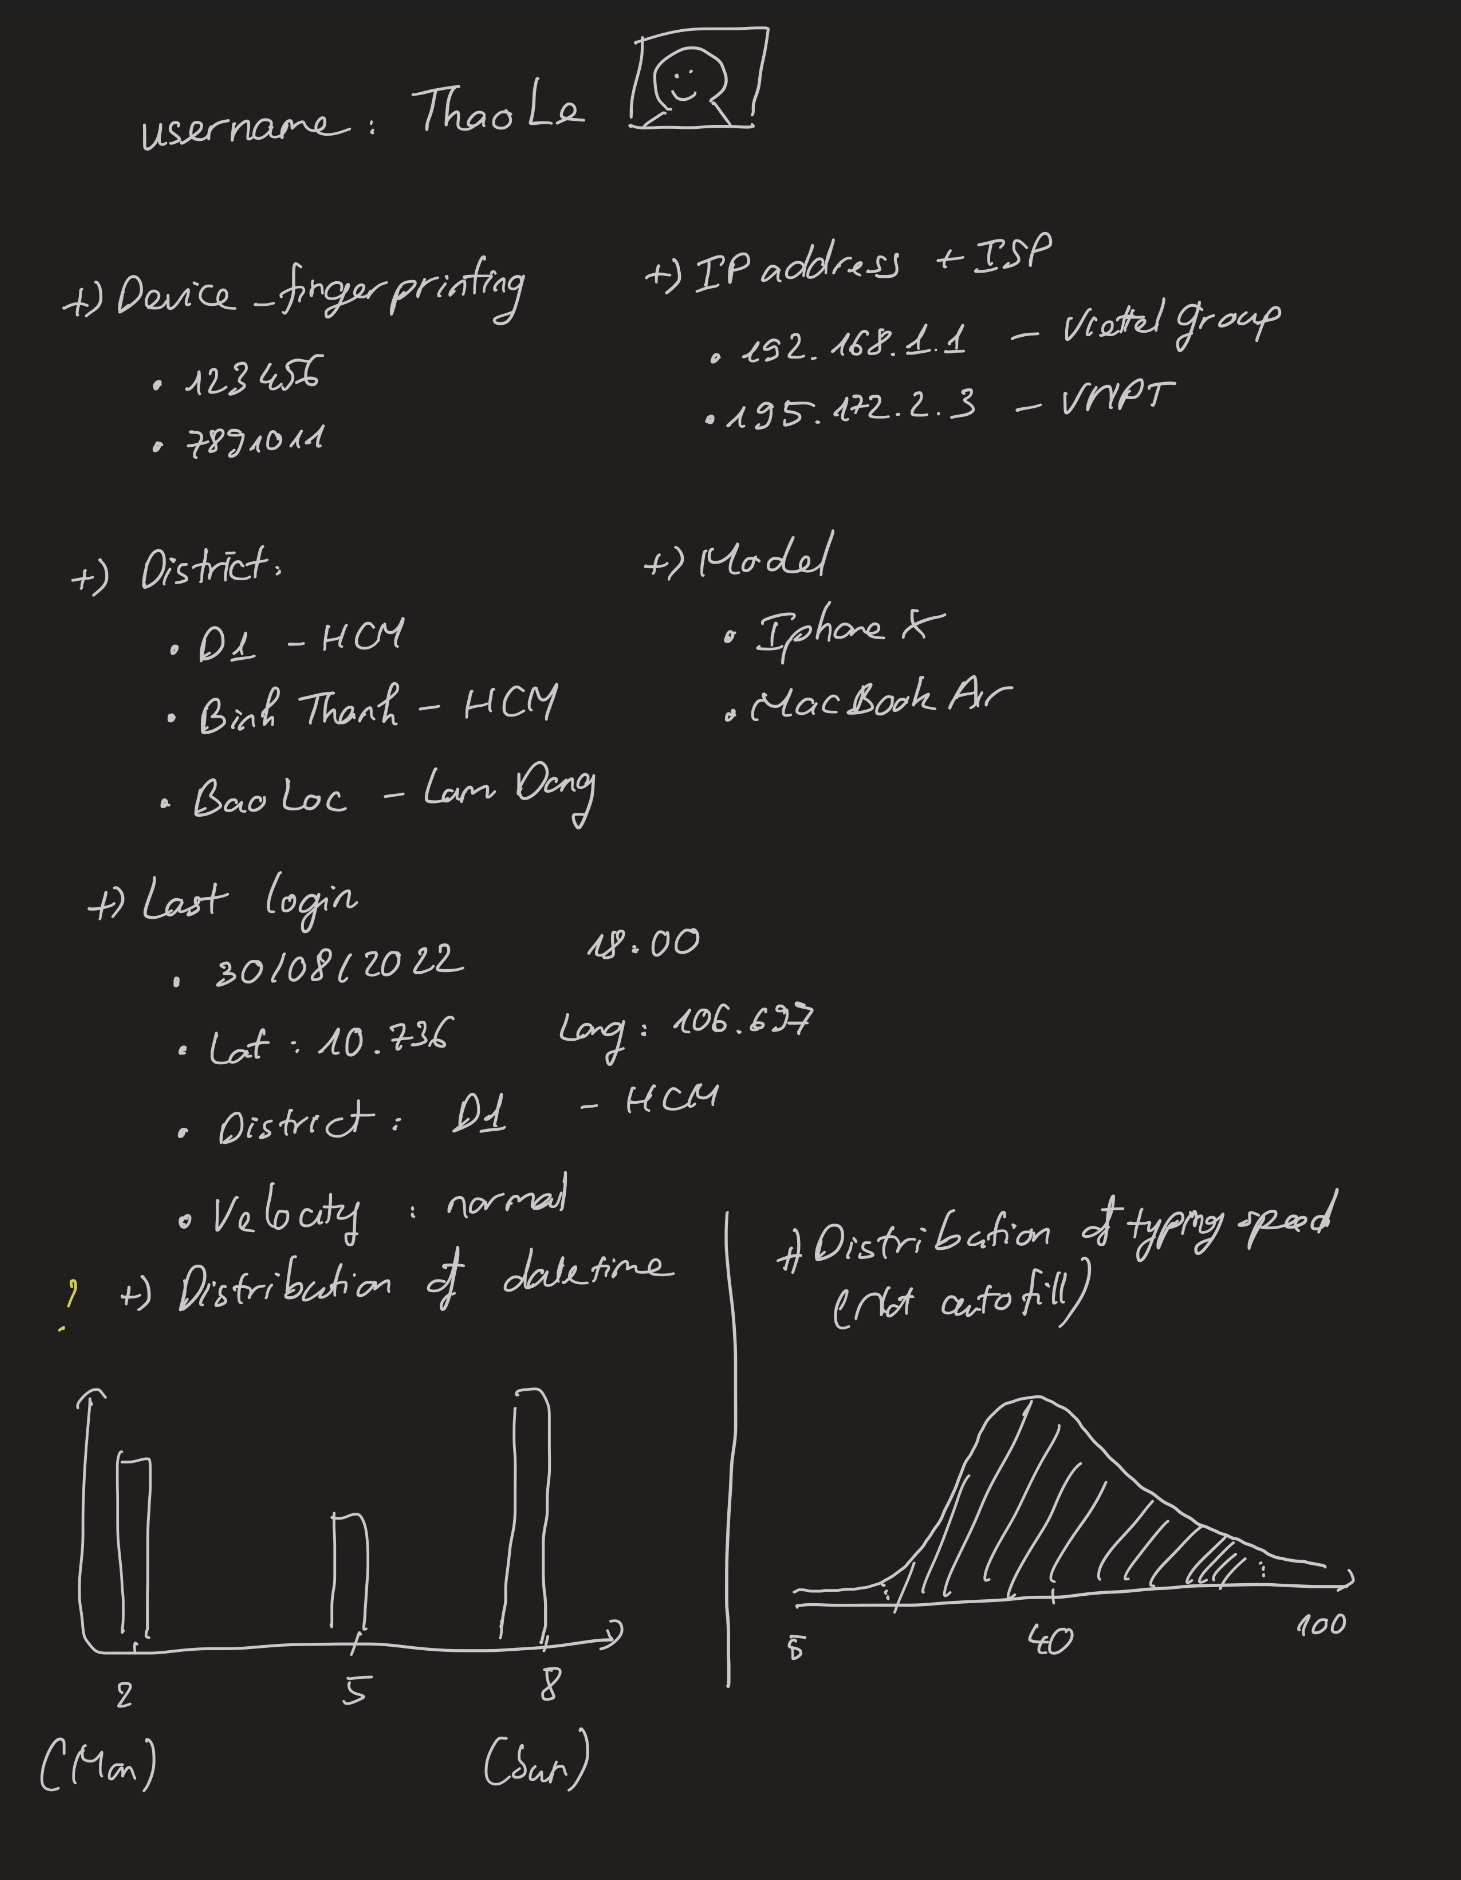 username: Thao Le
+) Device-fingerprinting
• 123456
• 7891011
+) IP address + ISP
• 192.168.1.1 - Viettel Group
• 195.172.2.3 - VNPT
+) District:
• D1 - HCM
• Binh Thanh - HCM
• Bao Loc - Lam Dong
+) Model
• Iphone X
• MacBook Air
+) Last login
• 30/08/2022 18:00
• Lat: 10.736 Long: 106.697
• District: D1 - HCM
• Velocity: normal
? +) Distribution of datetime
2 5 8
(Mon) (Sun)
+) Distribution of typing speed
(not autofill)
5 40 100